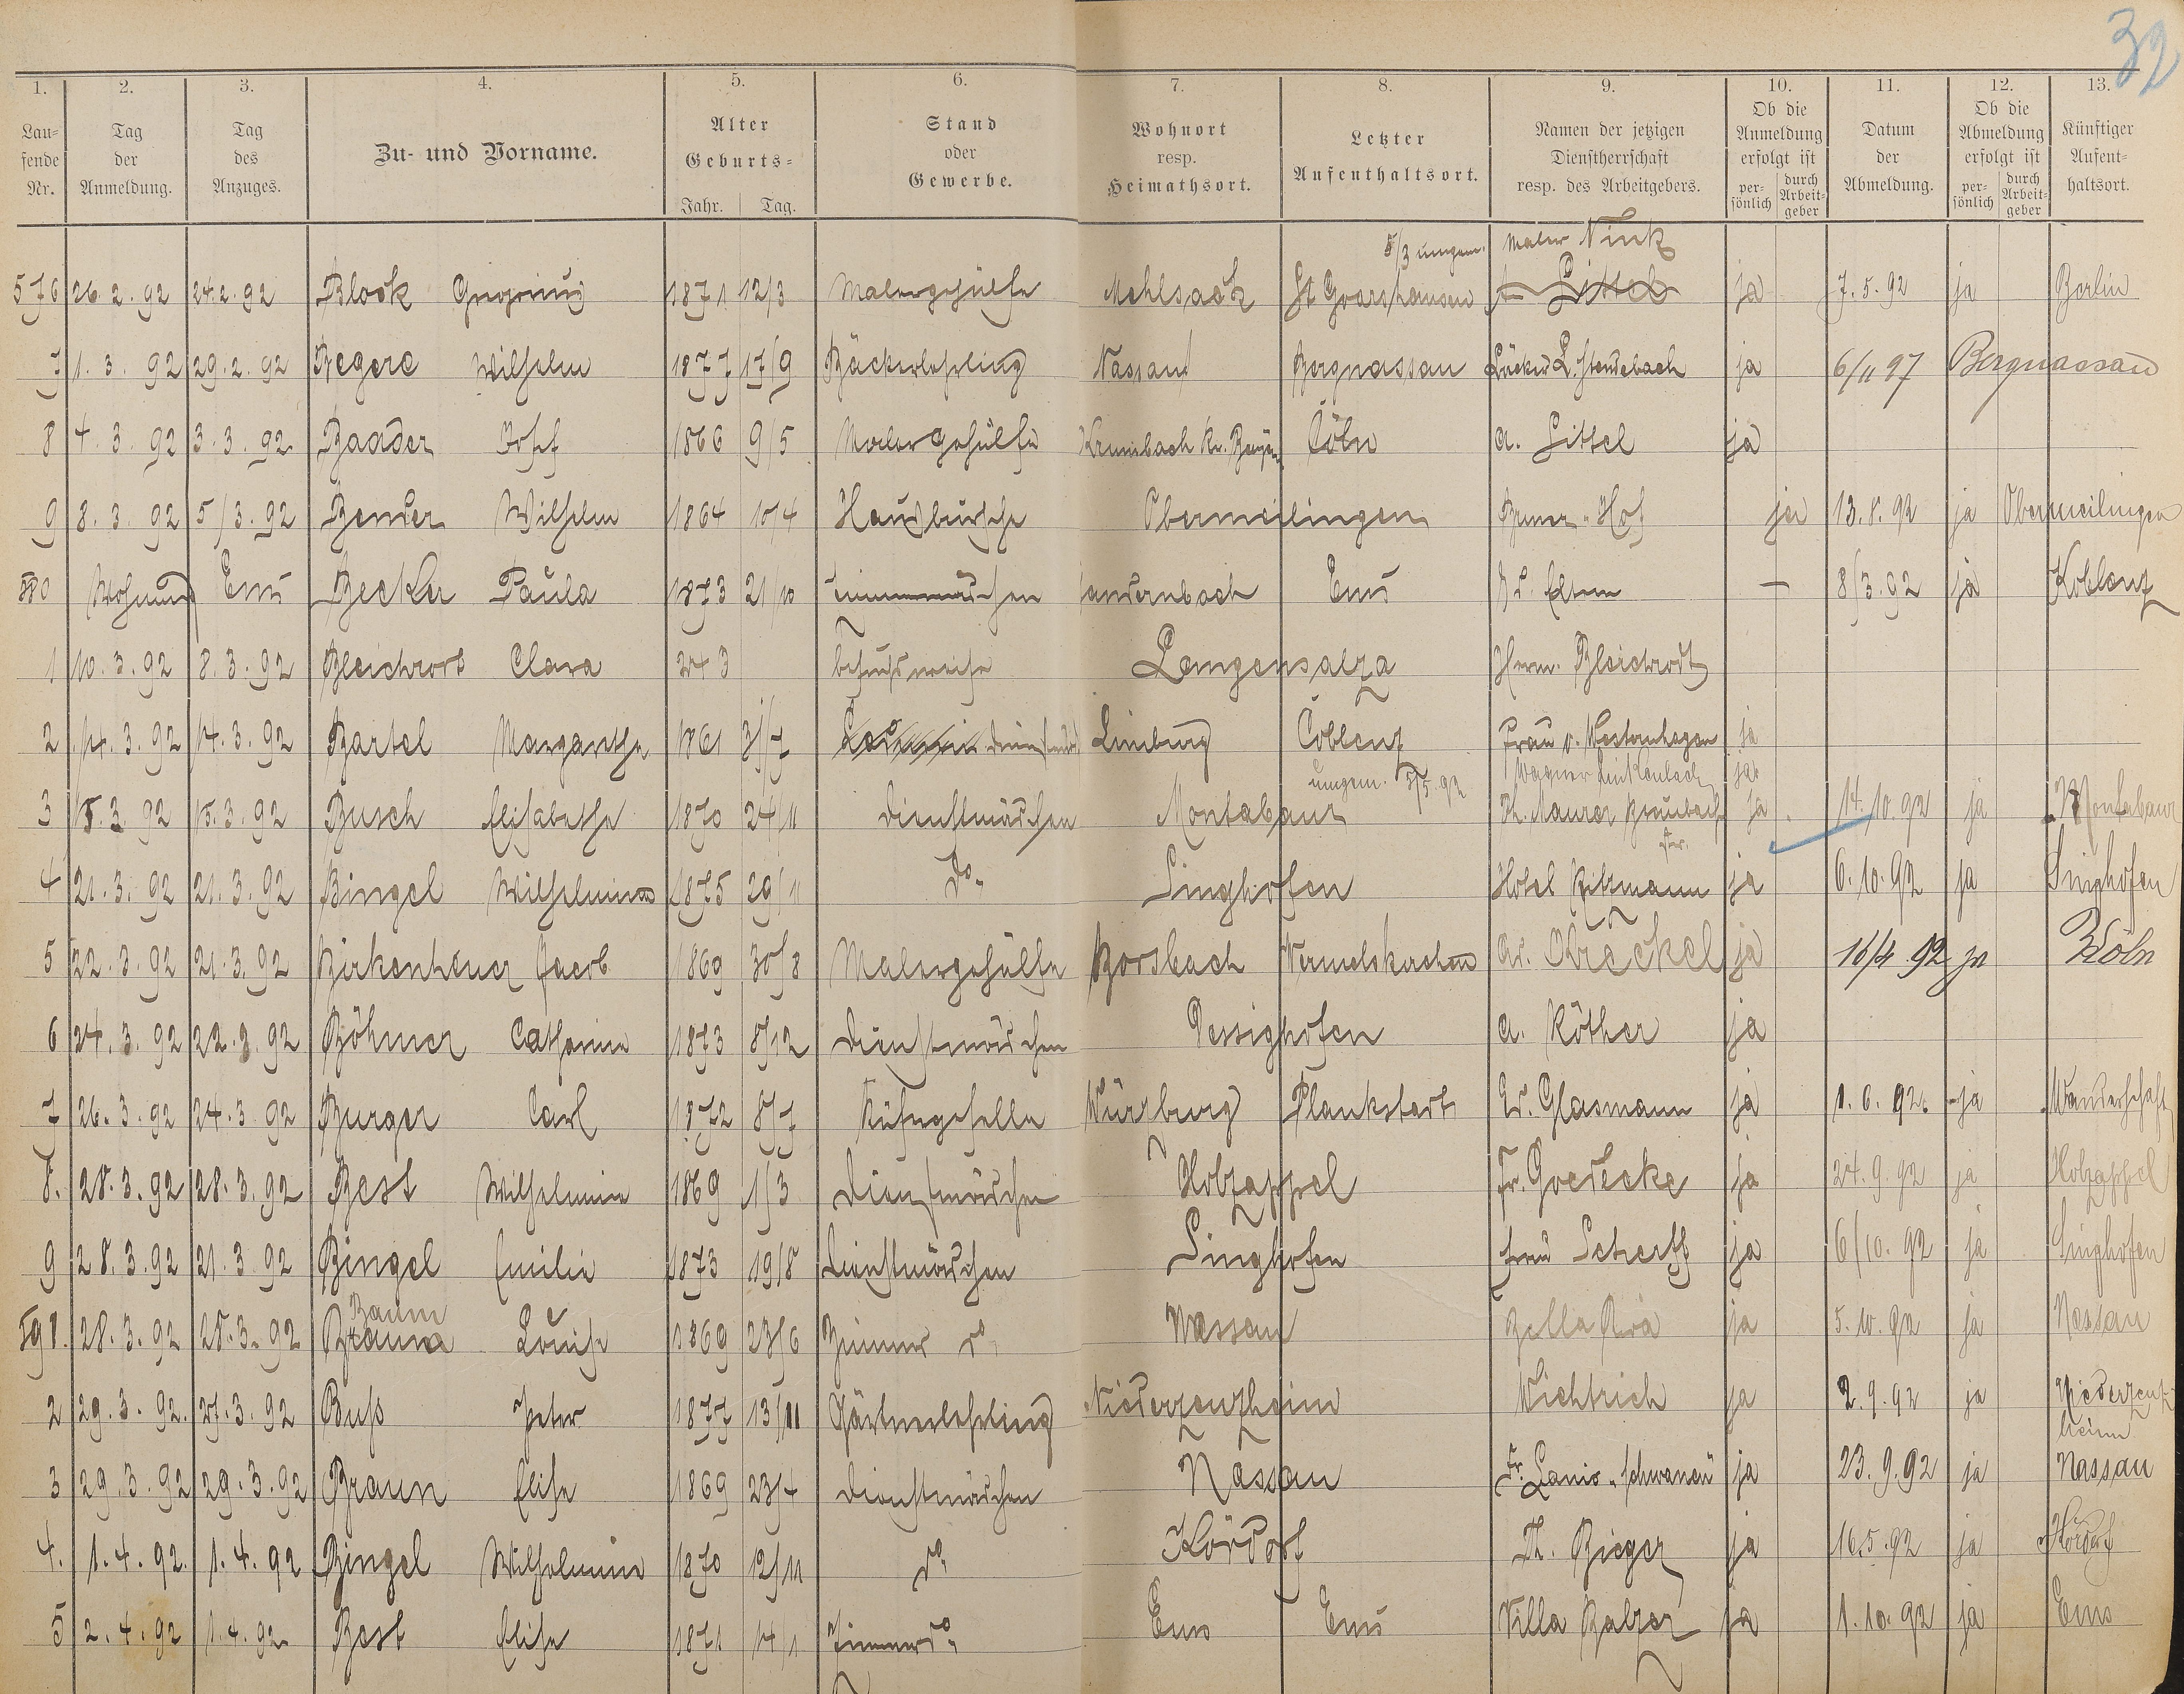 32
1. 2. 3. 4. 5. 6. 7. 8. 9. 10. 11. 12. 13.
Lau-
fende
Nr.
Tag
der
Anmeldung.
Tag
des
Anzuges.
Zu- und Vorname.
Alter
Geburts-
Jahr. Tag.
Stand
oder
Gewerbe.
Wohnort
resp.
Heimathsort.
Letzter
Aufenthaltsort.
Namen der jetzigen
Dienstherrschaft
resp. des Arbeitgebers.
Ob die
Anmeldung
erfolgt ist
per-
sönlich
durch
Arbeit-
geber
Datum
der
Abmeldung.
Ob die
Abmeldung
erfolgt ist
per-
sönlich
durch
Arbeit-
geber
Künftiger
Aufent-
haltsort.
5/3 umgem. Maler Nink
576 26.2.92 24.2.92 Block 1871 12/3 Malergehülfe Mehlsack St Goarshausen Sittel ja 7.5.92 ja Berlin
7 1.3.92 29.2.92 Wilhelm 1877 17/9 Bäckerlehrling Nassau Bergnassau ja 6/11 97 Bergnassau
8 4.3.92 3.3.92 Baader Josef 1866 9/5 Malergehülfe Cöln a. Sittel ja
9 8.3.92 5/3.92 Bender Wilhelm 1864 10/4 Hausbursche Obermeilingen Hof ja 13.8.92 ja Obermeilingen
580 Wohnung Ems Becker Paula 1873 21/10 Zimmermädchen Ems 8/3.92 ja Koblenz
1 10.3.92 8.3.92 Bleichrodt Clara 24 3 besuchsweise Langensalza Herm. Bleichrodt
2 14.3.92 14.3.92 Bartel Margarethe 1861 3/7 Limburg Coblenz Frau v. Westernhagen ja
umgem. 3/5.92 Wagner Linkenbach ja
3 15.3.92 15.3.92 Busch Elisabethe 1870 24/11 Dienstmädchen Montabaur Maurer Braubach ja 14.10.92 ja Montabaur
str.
4 21.3.92 21.3.92 Bingel Wilhelmine 1875 29/11 do. Singhofen Hotel Ritzmann ja 6.10.92 ja Singhofen
5 22.3.92 21.3.92 Birkenheuer Jacob 1869 30/8 Malergehülfe Borsbach Wermelskirchen ja 16/4 92 ja Köln
6 24.3.92 22.3.92 Böhmer Catharine 1873 8/12 Dienstmädchen Dessighofen a. Köther ja
7 26.3.92 24.3.92 Burger Carl 1872 8/7 Küfergeselle Würzburg Plankstadt Glasmann ja 1.6.92. ja Wanderschaft
8. 28.3.92 28.3.92 Best Wilhelmine 1869 1/3 Dienstmädchen Holzappel Fr. Goedecke ja 24.9.92 ja Holzappel
9 28.3.92 21.3.92 Bingel Emilie 1873 19/8 Dienstmädchen Singhofen Frau ja 6/10.92 ja Singhofen
Baum
591. 28.3.92 28.3.92 Braun Louise 1869 23/6 Zimmer do Nassau Bella Riva ja 5.10.92 ja Nassau
2 29.3.92. 27.3.92 Buß Peter 1877 13/11 Gärtnerlehrling Niederzeuzheim Wichtrich ja 2.9.92 ja Niederzeuz-
heim
3 29.3.92 29.3.92 Braun Elise 1869 23/4 Dienstmädchen Nassau Fr. Lanio ja 23.9.92 ja Nassau
4. 1.4.92. 1.4.92 Bingel Wilhelmine 1870 12/11 do Kördorf Th. Rieger ja 16.5.92 ja Kördorf
5 2.4.92 1.4.92 Best Elise 1871 14/1 Zimmer do. Ems Ems Villa Balzer ja 1.10.92 ja Ems